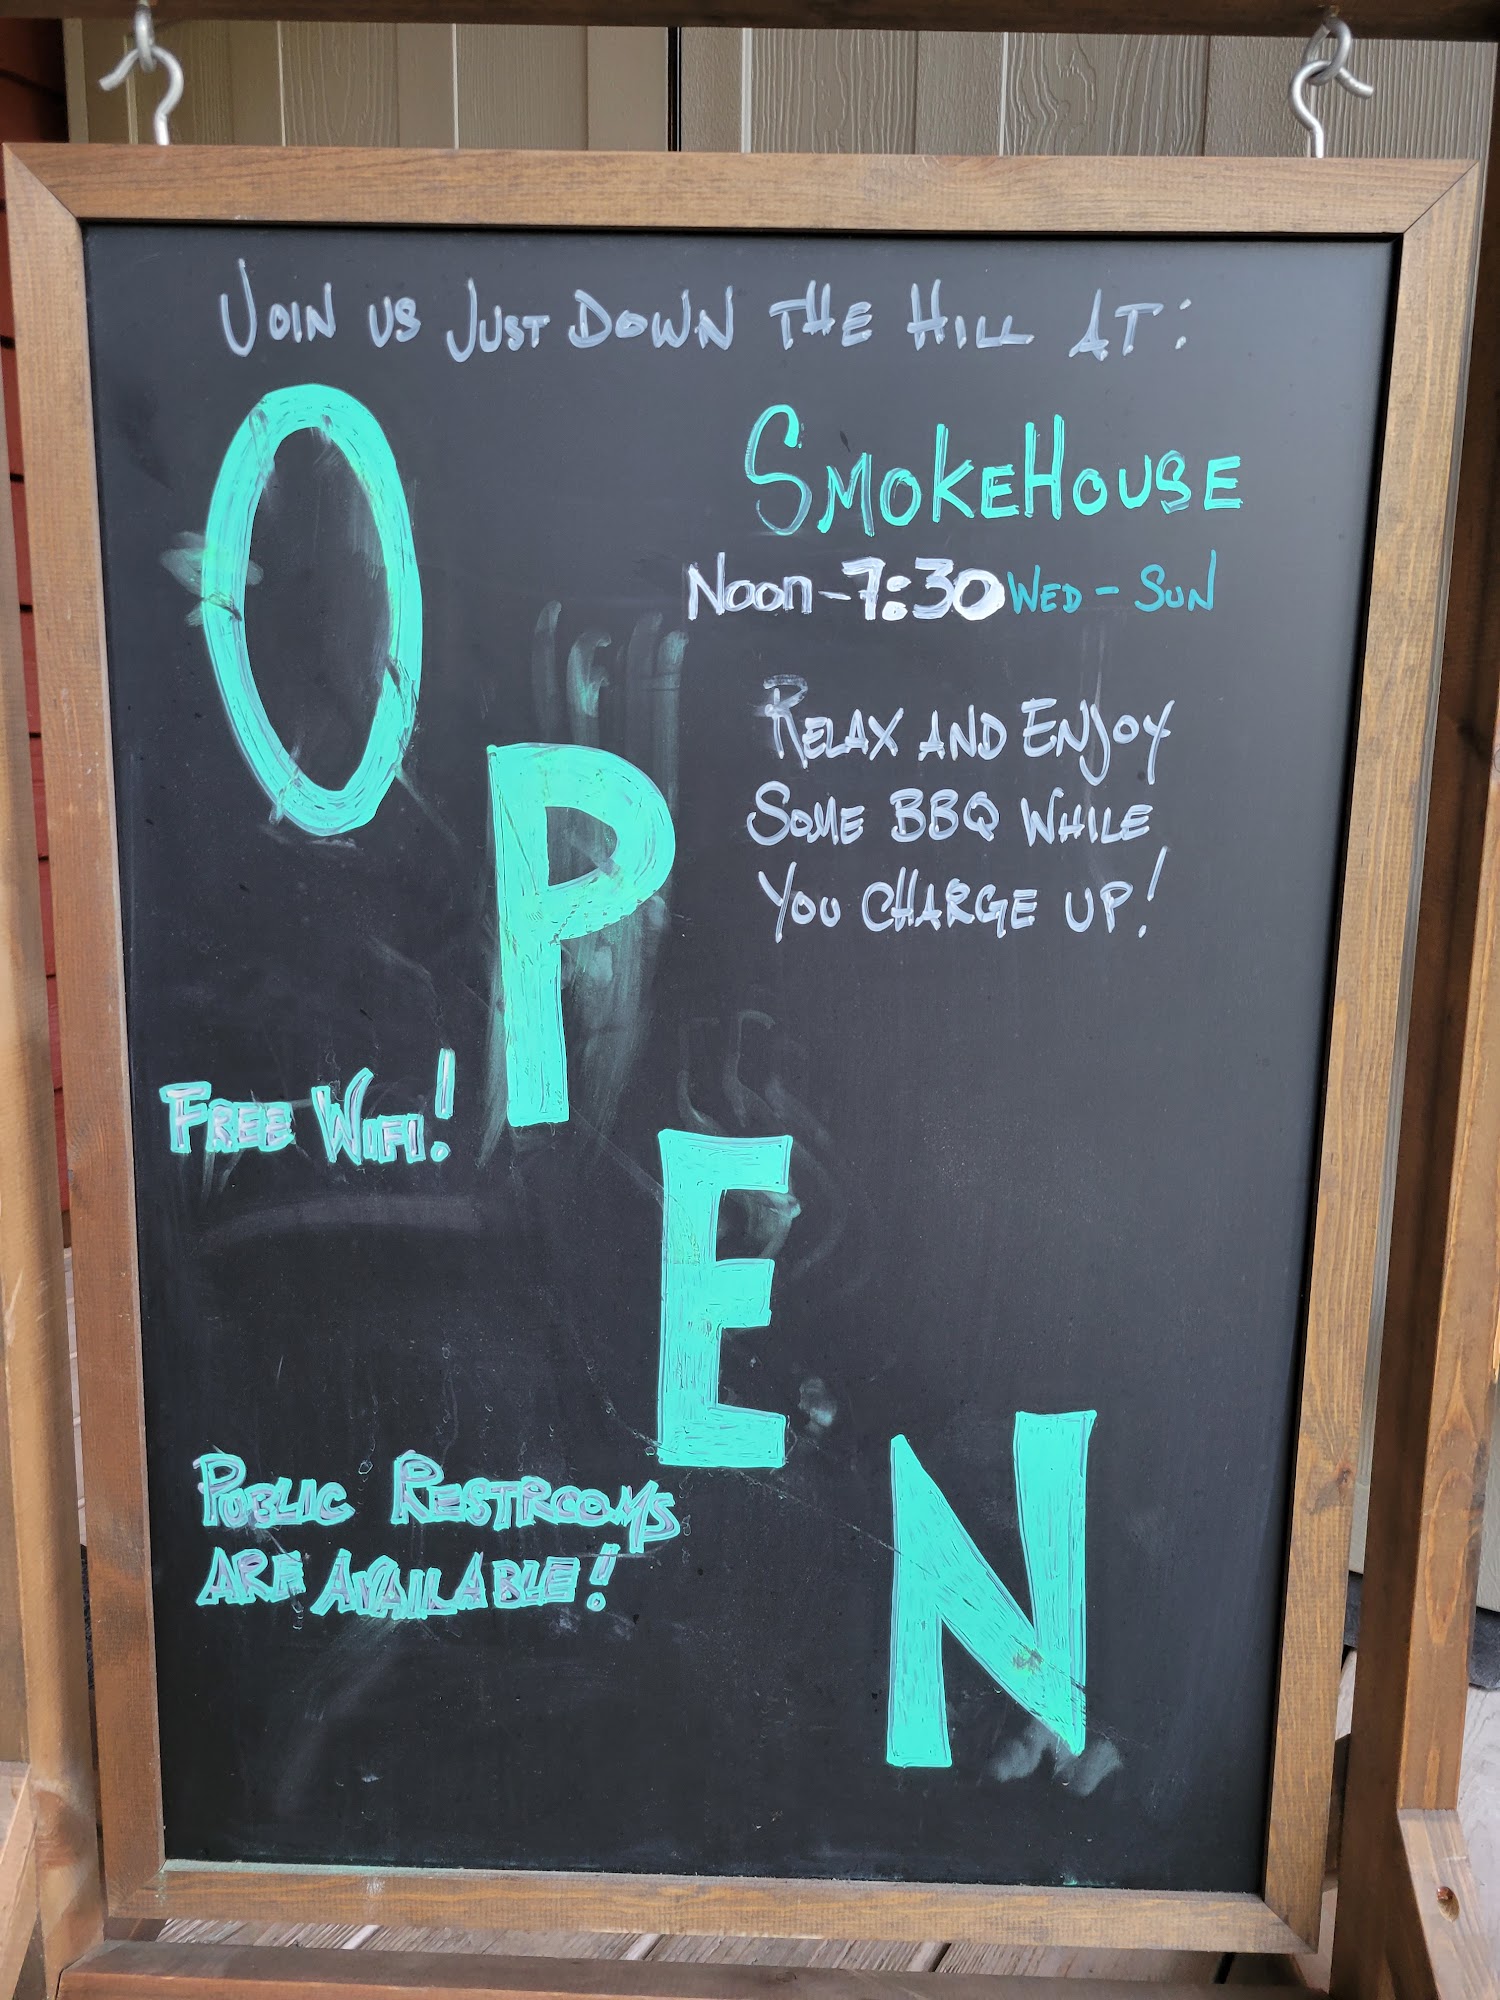 Join us Just Down The Hill At:
SmokeHouse
Noon-7:30 Wed - Sun
Relax and Enjoy
Some BBQ While
You Charge up!
OPEN
Free WiFi!
Public Restrooms
are Available!